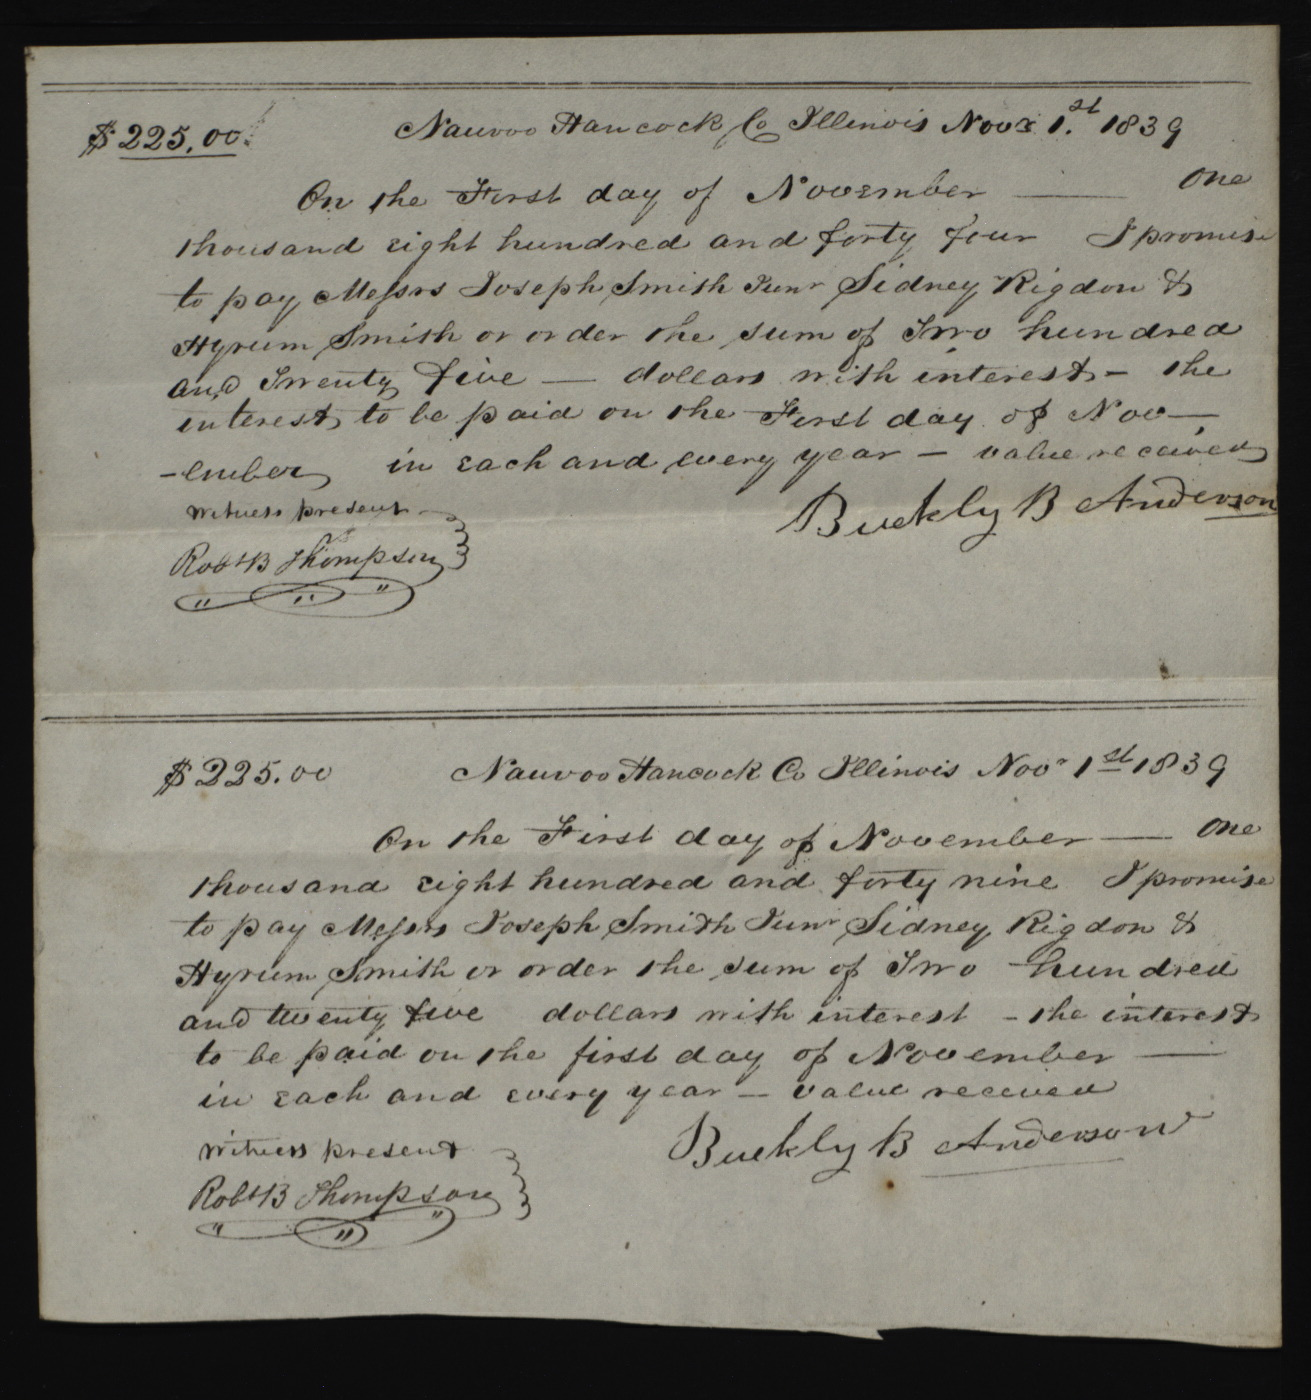 $225.00. Nauvoo Hancock Co Illinois Novr 1.st 1839
On the First day of November — One
thousand eight hundred and forty four I promise
to pay Messrs Joseph Smith Junr Sidney Rigdon &
Hyrum Smith or order the sum of Two hundred
and Twenty five — dollars with interest - the
interest to be paid on the First day of Nov—
-ember in each and every year — value received
Witness present
Buckly B Anderson
Robt B Thompson
$225.00 Nauvoo Hancock Co Illinois Novr 1st 1839
On the First day of November — One
thousand eight hundred and forty nine I promise
to pay Messrs Joseph Smith Junr Sidney Rigdon &
Hyrum Smith or order the sum of Two hundred
and twenty five dollars with interest - the interest
to be paid on the first day of November —
in each and every year — value received
Witness present
Buckly B Anderson
Robt B Thompson